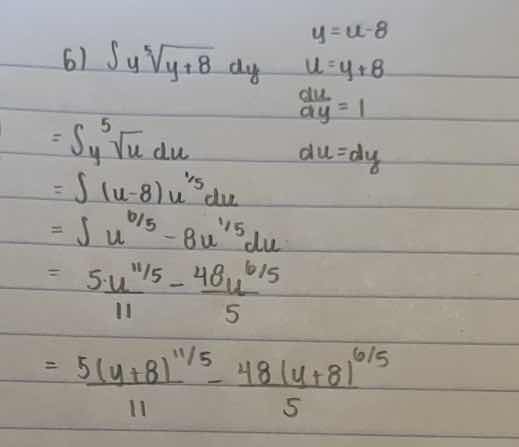 y = u-8
6) ∫ y ⁵√(y+8) dy u = y+8
du/dy = 1
= ∫ y ⁵√u du du = dy
= ∫ (u-8) u^(1/5) du
= ∫ u^(6/5) - 8u^(1/5) du
= 5·u^(11/5)/11 - 48u^(6/5)/5
= 5(y+8)^(11/5)/11 - 48(y+8)^(6/5)/5